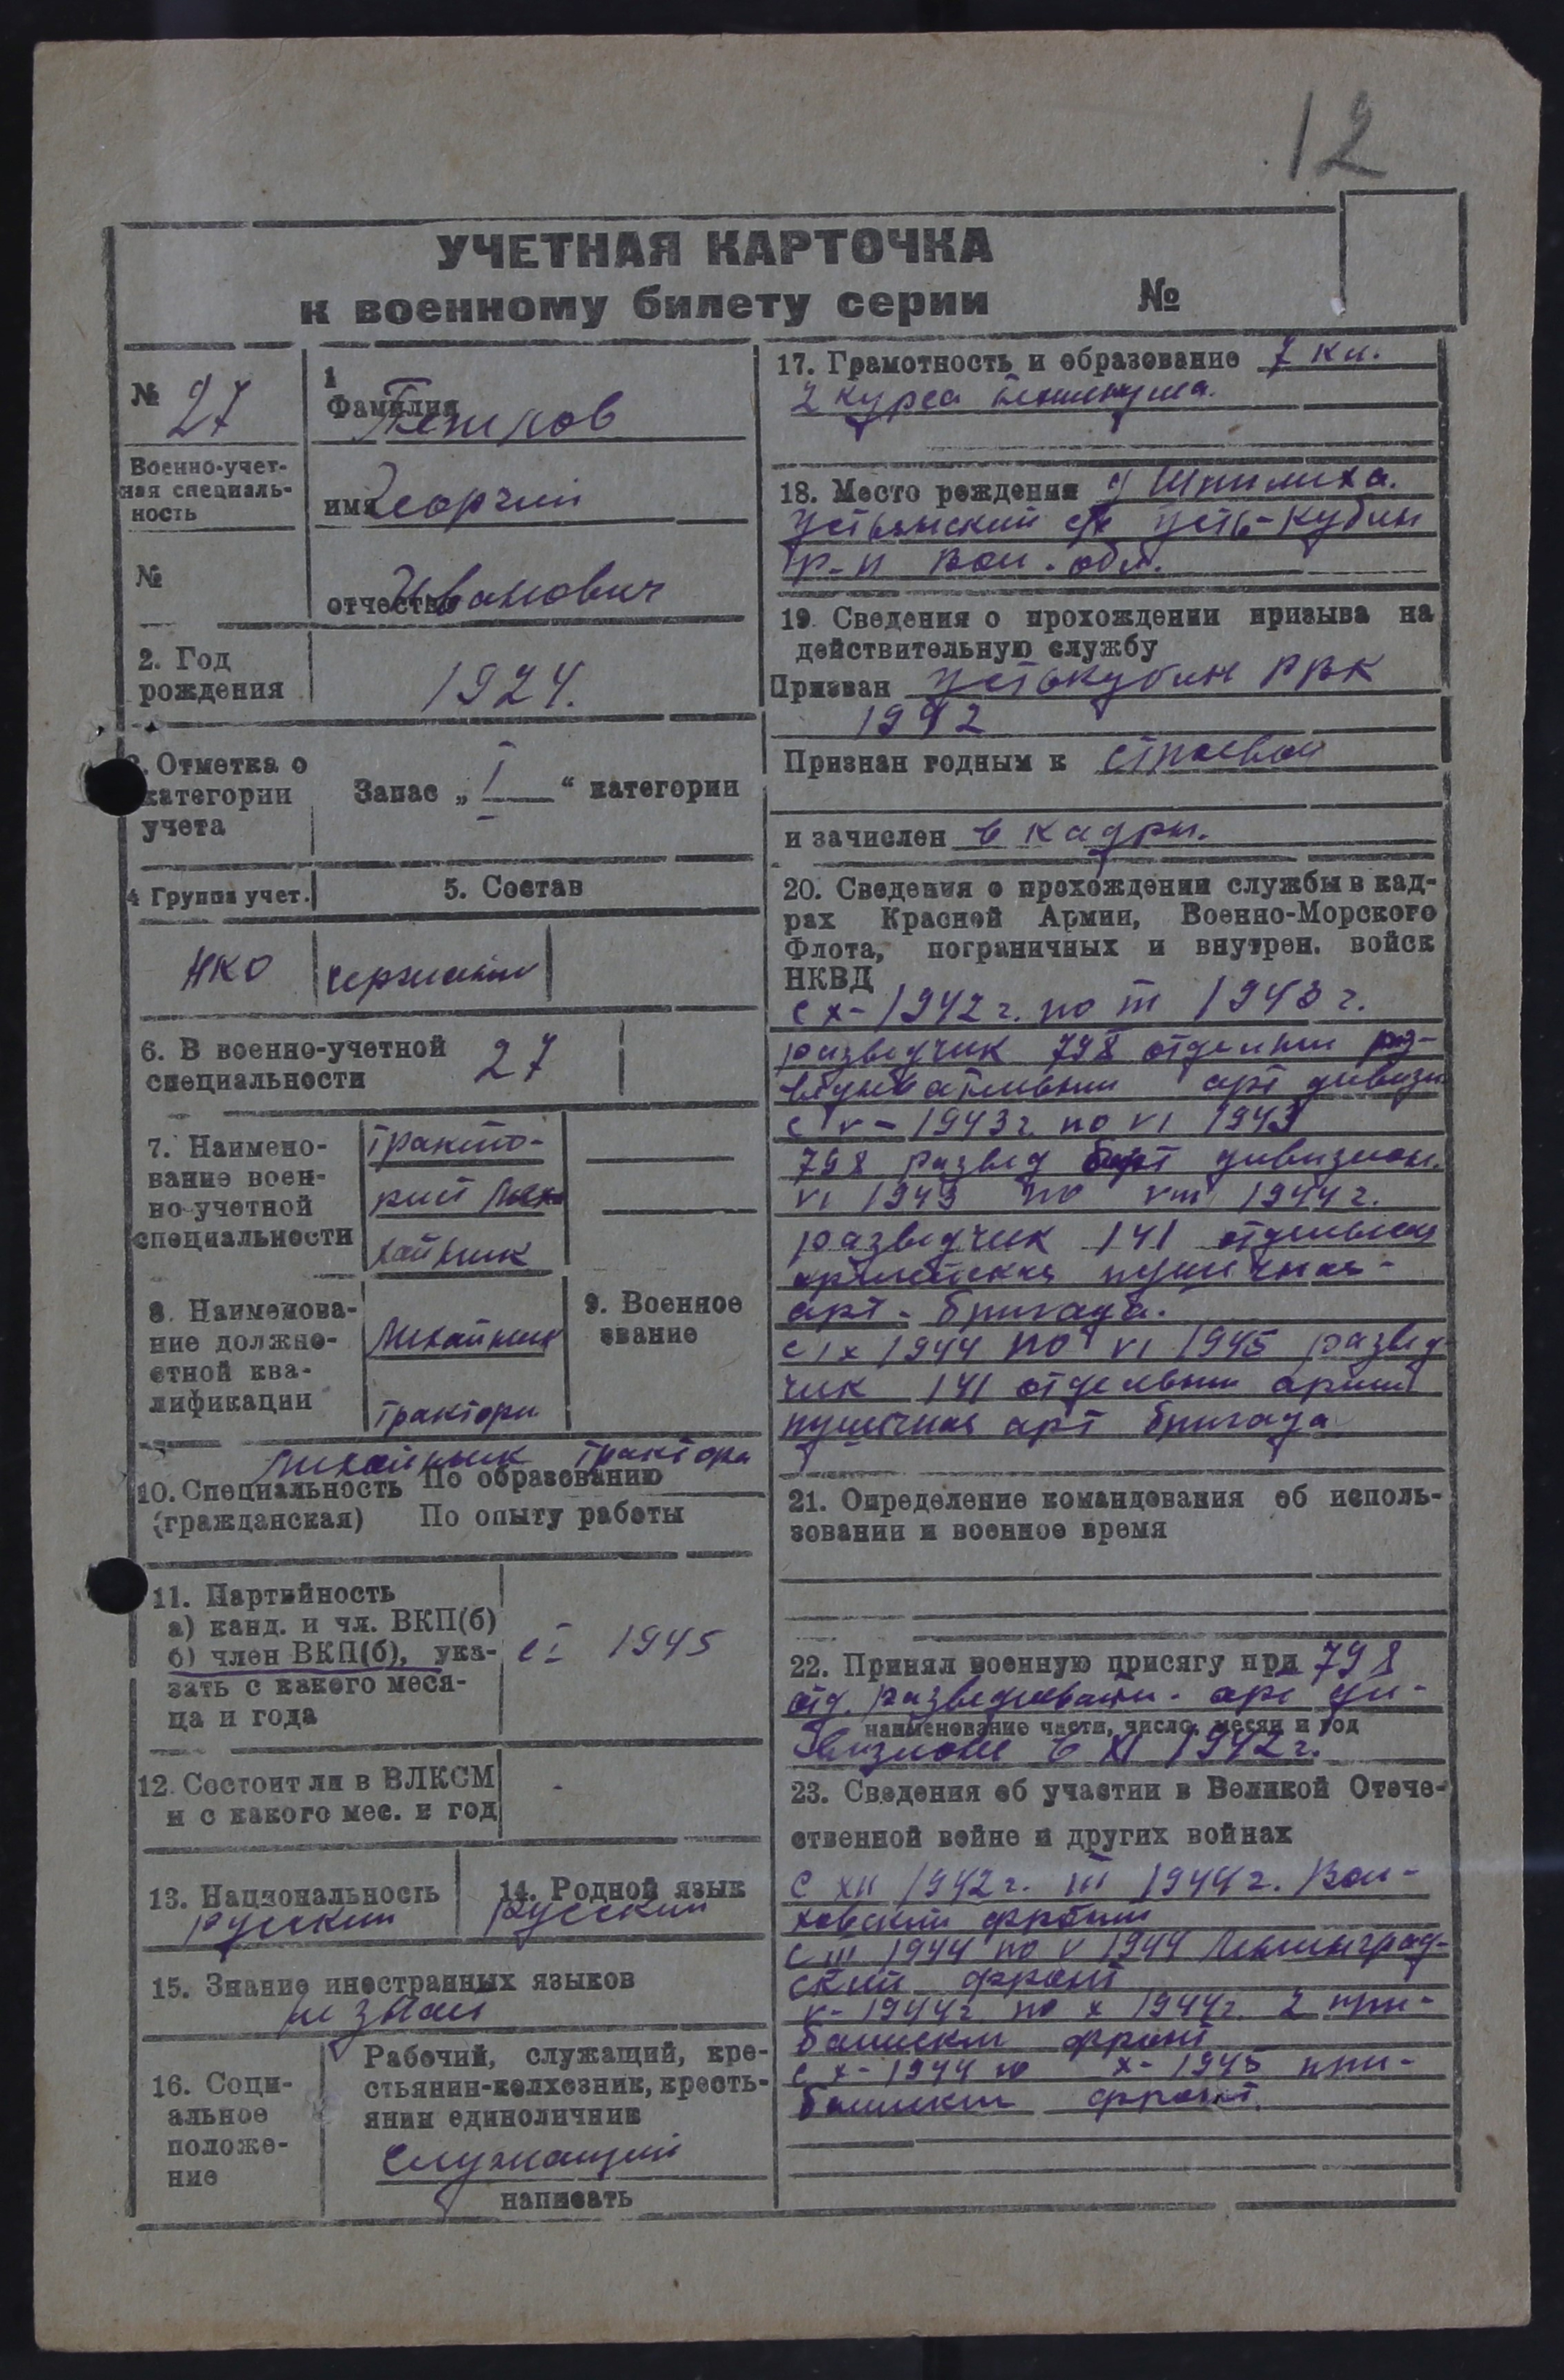 12
УЧЕТНАЯ КАРТОЧКА
к военному билету серии №
№ 27
Военно-учет-
ная специаль-
ность
№
1
Фамилия Петров
имя Георгий
отчество Иванович
2. Год
рождения
1924.
3. Отметка о
категории
учета
Запас „ I “ категории
4 Группа учет.
5. Состав
НКО
сержант
6. В военно-учетной
специальности
27
7. Наимено-
вание воен-
но-учетной
специальности
тракто-
рист
8. Наименова-
ние должно-
стной ква-
лификации
Механик
трактори
9. Военное
звание
Механик трактора
10. Специальность По образованию
(гражданская) По опыту работы
11. Партийность
а) канд. и чл. ВКП(б)
б) член ВКП(б), ука-
зать с какого меся-
ца и года
с I 1945
12. Состоит ли в ВЛКСМ
и с какого мес. и год
-
13. Национальность
русский
14. Родной язык
Русский
15. Знание иностранных языков
не знает
16. Соци-
альное
положе-
ние
Рабочий, служащий, кре-
стьянин-колхозник, кресть-
янин единоличник
Служащий
написать
17. Грамотность и образование 7 кл.
2 курса техникума.
18. Место рождения д Шпилиха.
Устьянский с/с Усть-Кубин
р-н Вол. обл.
19. Сведения о прохождении призыва на
действительную службу
Призван Устькубин РВК
1942
Признан годным к строевой
и зачислен в кадры.
20. Сведения о прохождении службы в кад-
рах Красной Армии, Военно-Морского
Флота, пограничных и внутрен. войск
НКВД
с X- 1942 г. по III 1943 г.
разведчик 798 отдельный раз-
ведывательный арт дивизи
с V- 1943 г. по VI 1943
798 развед арт дивизион.
VI 1943 по VIII 1944 г.
разведчик 141 отдельная
армейская пушечная-
арт- бригада.
с IX 1944 по VI 1945 развед
чик 141 отдельный армей
пушечная арт бригада
21. Определение командования об исполь-
зовании и военное время
22. Принял военную присягу при 798
отд. разведывати- арт ди-
наименование части, число, месяц и год
визионе в XI 1942 г.
23. Сведения об участии в Великой Отече-
ственной войне и других войнах
С XII 1942 г. III 1944 г. Вол-
ховский фронт
с III 1944 по V 1944 Ленинград-
ский фронт
V- 1944 г. по X 1944 г. 2 при-
балтиский фронт
с X- 1944 по X- 1945 при-
балтиский фронт.